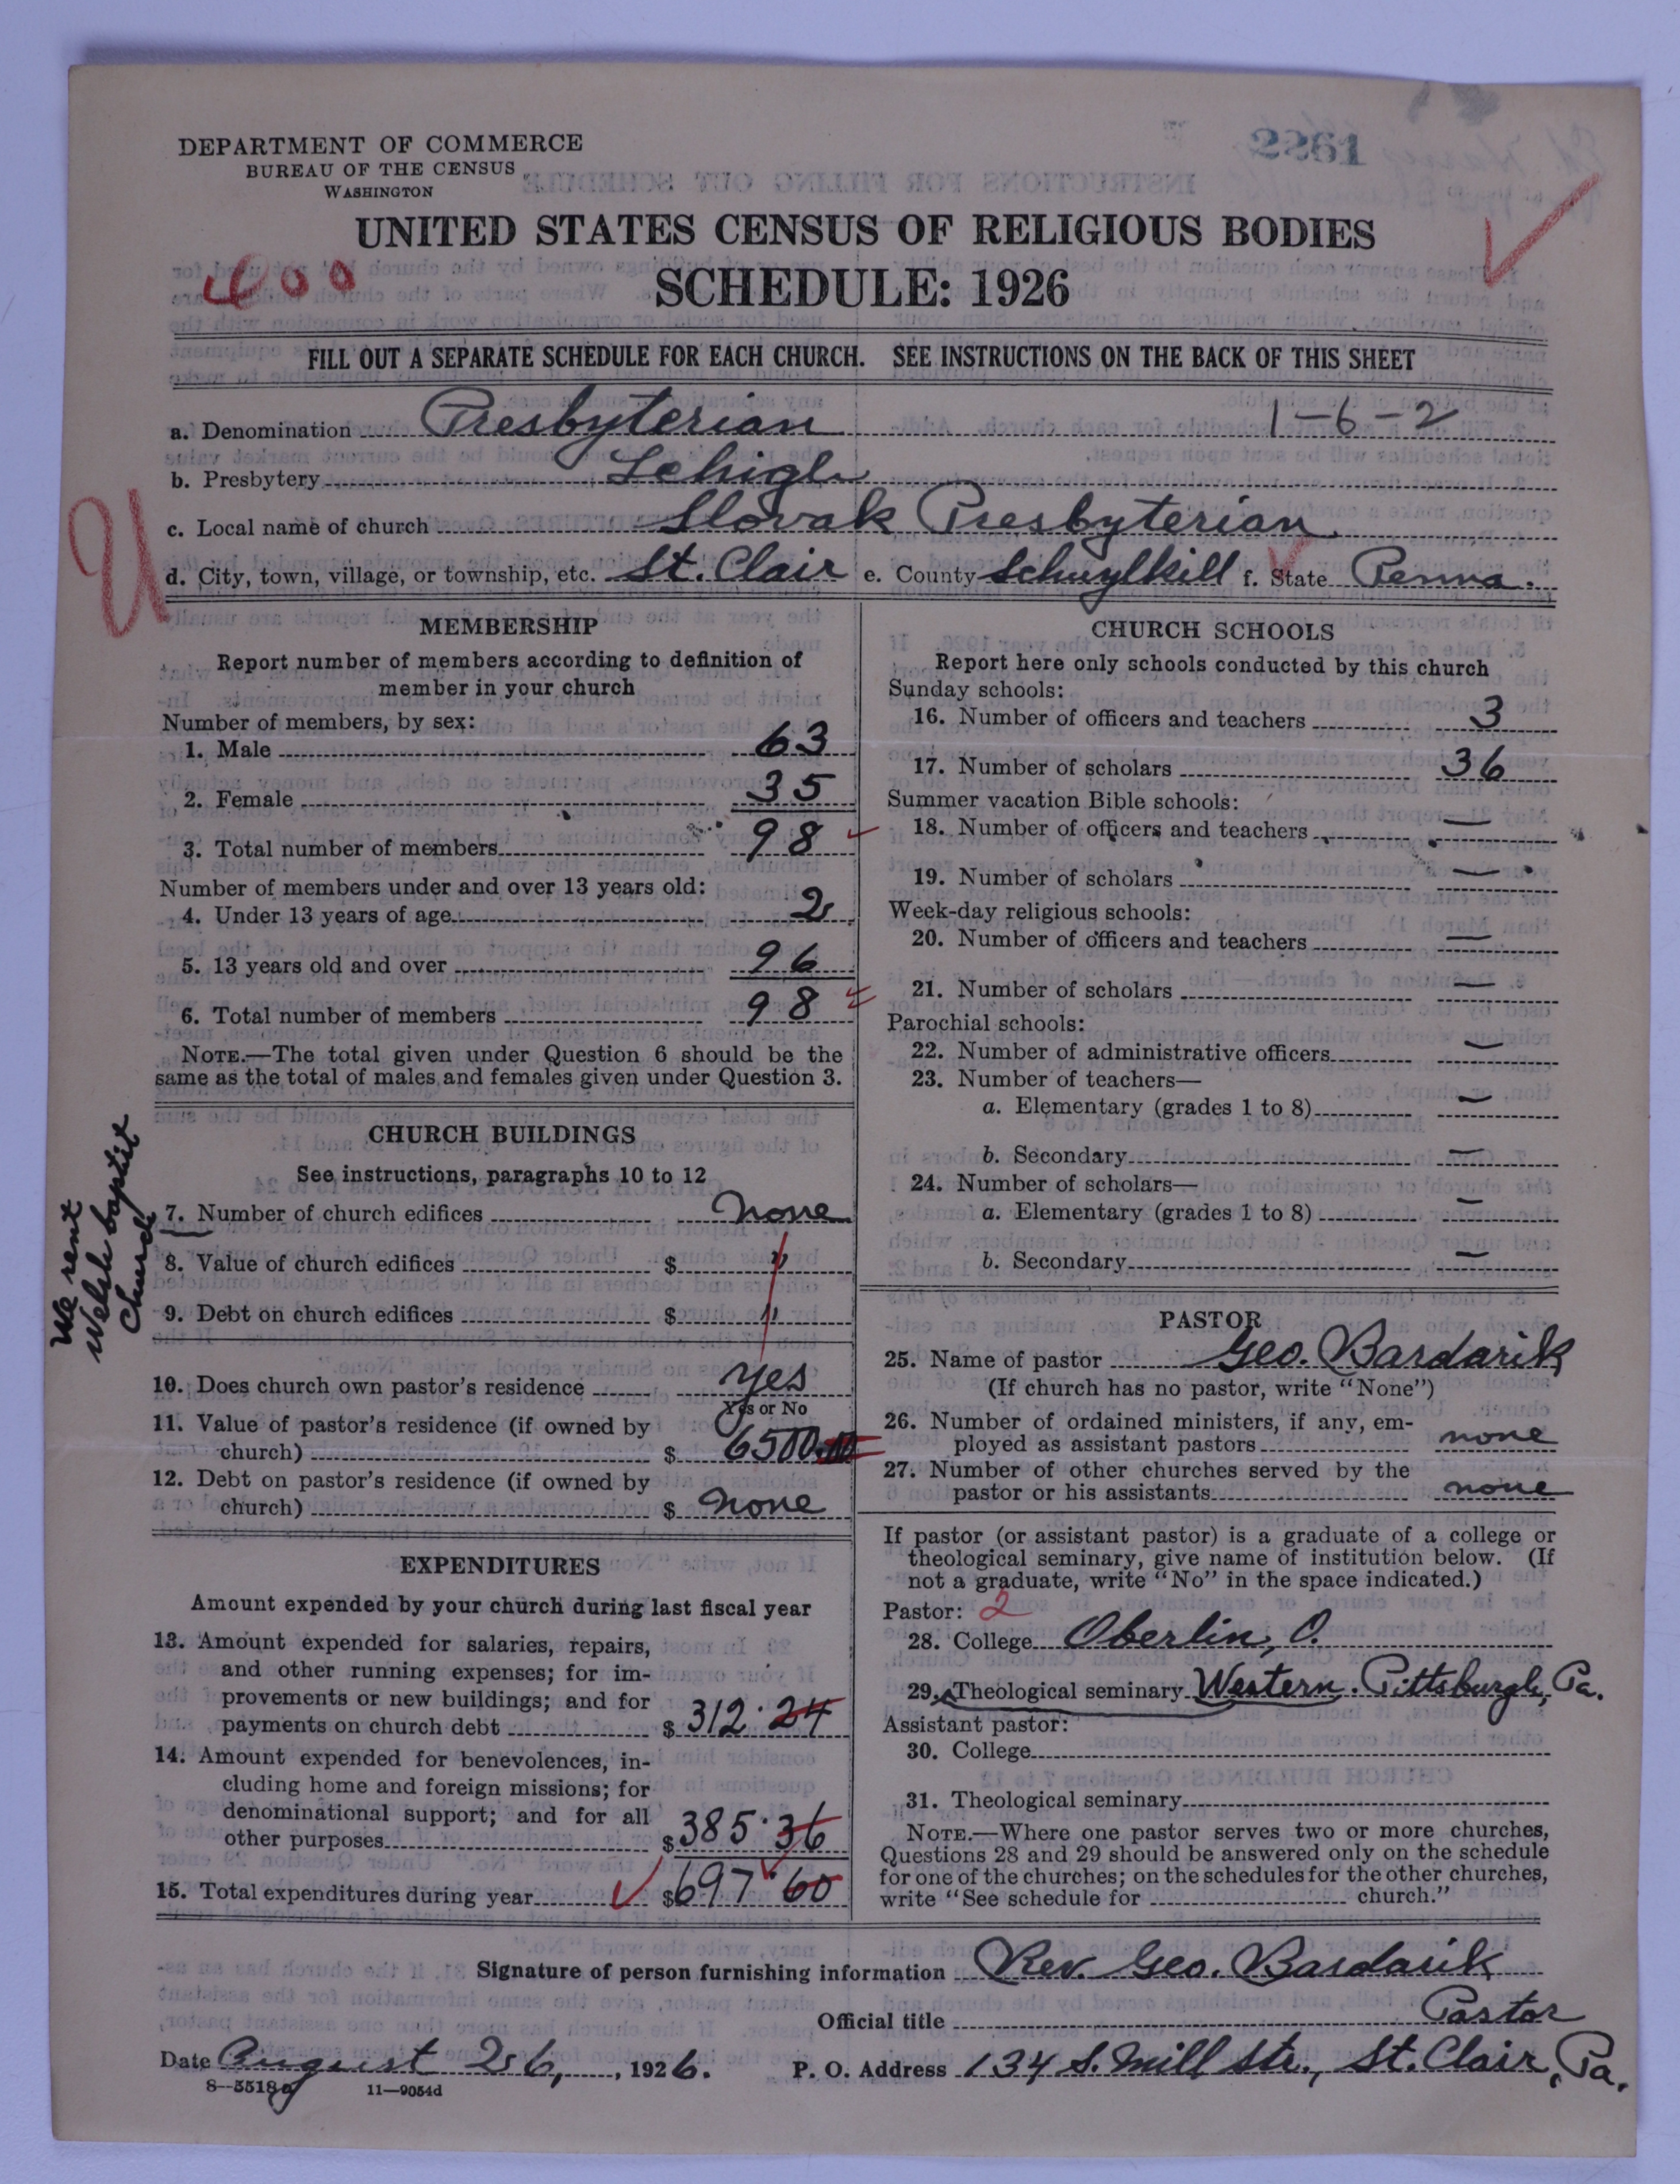 DEPARTMENT OF COMMERCE
BUREAU OF THE CENSUS
WASHINGTON
2261
UNITED STATES CENSUS OF RELIGIOUS BODIES
SCHEDULE: 1926
FILL OUT A SEPARATE SCHEDULE FOR EACH CHURCH. SEE INSTRUCTIONS ON THE BACK OF THIS SHEET
a. Denomination Presbyterian 1-6-2
b. Presbytery Lehigh
c. Local name of church Slovak Presbyterian
U
d. City, town, village, or township, etc. St. Clair e. County Schuylkill f. State Penna.
MEMBERSHIP
Report number of members according to definition of
member in your church
Number of members, by sex:
1. Male 63
2. Female 35
3. Total number of members 98
Number of members under and over 13 years old:
4. Under 13 years of age 2
5. 13 years old and over 96
6. Total number of members 98
NOTE.—The total given under Question 6 should be the
same as the total of males and females given under Question 3.
CHURCH BUILDINGS
See instructions, paragraphs 10 to 12
7. Number of church edifices none
8. Value of church edifices $ "
9. Debt on church edifices $ "
We rent
Welsh baptist
Church
10. Does church own pastor's residence yes
Yes or No
11. Value of pastor's residence (if owned by
church) $ 6500.00
12. Debt on pastor's residence (if owned by
church) $ none
EXPENDITURES
Amount expended by your church during last fiscal year
13. Amount expended for salaries, repairs,
and other running expenses; for im-
provements or new buildings; and for
payments on church debt $ 312.24
14. Amount expended for benevolences, in-
cluding home and foreign missions; for
denominational support; and for all
other purposes $ 385.36
15. Total expenditures during year $ 697.60
CHURCH SCHOOLS
Report here only schools conducted by this church
Sunday schools:
16. Number of officers and teachers 3
17. Number of scholars 36
Summer vacation Bible schools:
18. Number of officers and teachers —
19. Number of scholars —
Week-day religious schools:
20. Number of officers and teachers —
21. Number of scholars —
Parochial schools:
22. Number of administrative officers —
23. Number of teachers—
a. Elementary (grades 1 to 8) —
b. Secondary —
24. Number of scholars—
a. Elementary (grades 1 to 8) —
b. Secondary —
PASTOR
25. Name of pastor Geo. Bardarik
(If church has no pastor, write "None")
26. Number of ordained ministers, if any, em-
ployed as assistant pastors none
27. Number of other churches served by the
pastor or his assistants none
If pastor (or assistant pastor) is a graduate of a college or
theological seminary, give name of institution below. (If
not a graduate, write "No" in the space indicated.)
Pastor: 2
28. College Oberlin, O.
29. Theological seminary Western. Pittsburgh, Pa.
Assistant pastor:
30. College
31. Theological seminary
NOTE.—Where one pastor serves two or more churches,
Questions 28 and 29 should be answered only on the schedule
for one of the churches; on the schedules for the other churches,
write "See schedule for church."
Signature of person furnishing information Rev. Geo. Bardarik
Official title Pastor
Date August 26, , 1926. P. O. Address 134 S. Mill Str., St. Clair, Pa.
8—5518a 11—9054d